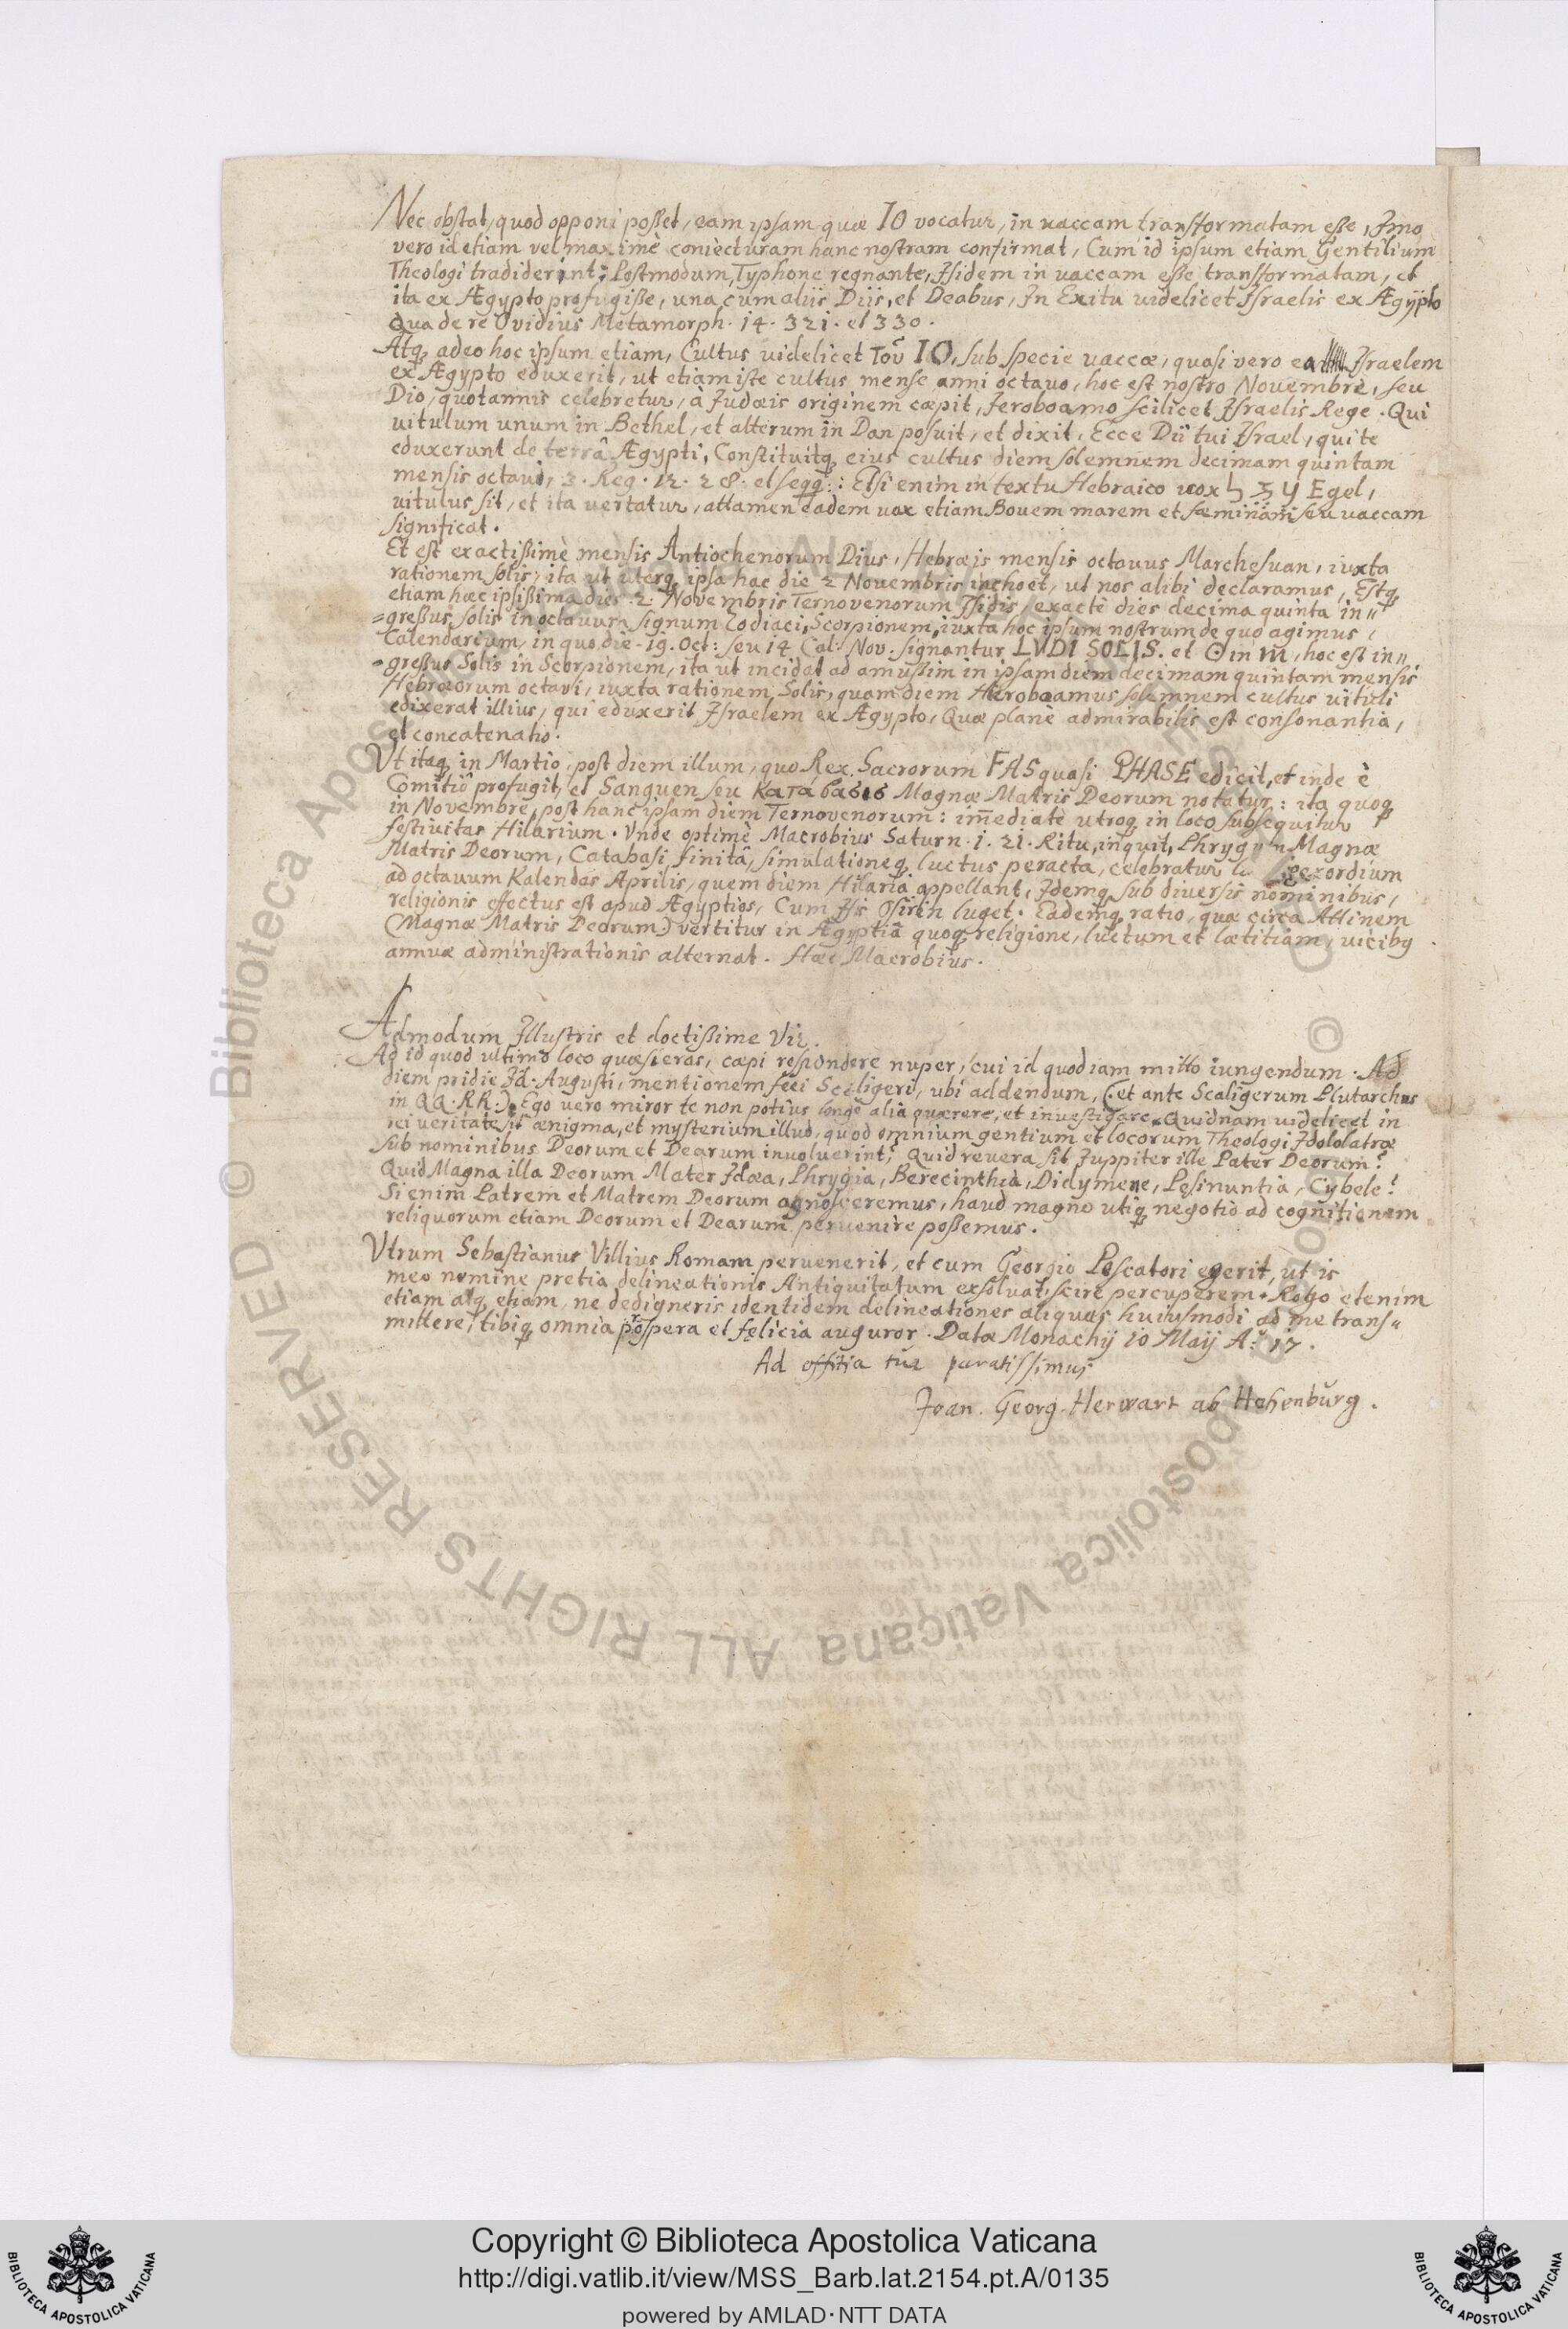 Nec obstat, quod opponi posset, eam ipsam quæ IO vocatur, in vaccam transformatam esse, Imo
vero id etiam vel maximè coniecturam hanc nostram confirmat, Cum id ipsum etiam Gentilium
Theologi tradiderint: Postmodum, Typhone regnante, Isidem in vaccam esse transformatam, et
ita ex Ægypto profugisse, una cum aliis Diis, et Deabus, In Exitu uidelicet Israelis ex Ægÿpto
Qua de re Ovidius Metamorph. 14. 321. et 330.
Atq, adeo hoc ipsum etiam, Cultus uidelicet Τοῦ IO, sub specie vaccæ, quasi vero ea Israelem
ex Ægypto eduxerit, ut etiam iste cultus mense anni octavo, hoc est nostro Novembre, seu
Dio, quotannis celebretur, à Judæis originem cæpit, Jeroboamo scilicet Israelis Rege. Qui
vitulum unum in Bethel, et alterum in Dan posuit, et dixit, Ecce Dii tui Israel, qui te
eduxerunt de terrâ Ægypti, Constituitq, eius cultus diem solemnem decimam quintam
mensis octavi, 3. Reg. 12. 28. et seqq.: Etsi enim in textu Hebraico vox עגל Egel,
vitulus sit, et ita vertatur, attamen eadem vox etiam Bovem marem et fæminam seu vaccam
significat.
Et est exactissimè mensis Antiochenorum Dius, Hebræis mensis octavus Marchesuan, iuxta
rationem solis, ita ut uterq, ipsa hac die 2 Novembris inchoet, ut nos alibi declaramus, Estq,
etiam hæc ipsissima dies 2. Novembris Ternovenorum Isidis, exactè dies decima quinta in=
=gressus solis in octavum signum Zodiaci, Scorpionem, iuxta hoc ipsum nostrum de quo agimus,
Calendarium, in quo die 19. Oct: seu 14 Cal: Nov. signantur LVDI SOLIS. et ☉ in ♏, hoc est in=
=gressus Solis in Scorpionem, ita ut incidat ad amussim in ipsam diem decimam quintam mensis
Hebræorum octavi, iuxta rationem Solis, quam diem Hieroboamus solemnem cultus vituli
edixerat illius, qui eduxerit Israelem ex Ægypto, Quæ planè admirabilis est consonantia,
et concatenatio.
Vt itaq, in Martio, post diem illum, quo Rex Sacrorum FAS quasi PHASE edicit, et inde è
Comitiô profugit, et Sanguen seu κατάβασις Magnæ Matris Deorum notatur: ita quoq,
in Novembre, post hanc ipsam diem Ternovenorum: imediatè utroq, in loco subsequitur
festivitas Hilarium. Vnde optimè Macrobius Saturn. 1. 21. Ritu, inquit, Phrygum Magnæ
Matris Deorum, Catabasi finitâ, simulationeq, luctus peracta, celebratur exordium
ad octavum Kalendas Aprilis, quem diem Hilaria appellant, Idemq, sub diversis nominibus,
religionis effectus est apud Ægyptios, Cum Isis Osirin luget. Eademq, ratio, quæ circa Attinem
(Magnæ Matris Deorum) vertitur in Ægyptiâ quoq, religione, luctum et lætitiam, vicibq
annuæ administrationis alternat. Hæc Macrobius.
Admodum Illustris et doctissime Vir.
Ad id quod ultimo loco quæsieras, cæpi respondere nuper, cui id quod iam mitto iungendum. Ad
diem pridie Id. Augusti, mentionem feci Scaligeri, ubi addendum, (et ante Scaligerum Plutarchus
in QQ. RR.) Ego vero miror te non potius longè alia quærere, et investigare. Quidnam videlicet in
rei veritate sit ænigma, et mysterium illud, quod omnium gentium et locorum Theologi Idololatræ
sub nominibus Deorum et Dearum involuerint? Quid revera sit Juppiter ille Pater Deorum?
Quid Magna illa Deorum Mater Idæa, Phrygia, Berecinthia, Didymene, Pesinuntia, Cybele?
Si enim Patrem et Matrem Deorum agnosceremus, haud magno utiq, negotio ad cognitionem
reliquorum etiam Deorum et Dearum pervenire possemus.
Vtrum Sebastianus Villius Romam pervenerit, et cum Georgio Pescatori egerit, ut is
meo nomine pretia delineationis Antiquitatum exsoluat, scire percuperem. Rogo etenim
etiam atq, etiam, ne dedigneris identidem delineationes aliquas huiusmodi ad me trans=
mittere, tibiq, omnia prospera et felicia auguror. Datæ Monachij 10 Maij A.º 17.
Ad offitia tua paratissimus
Joan. Georg. Herwart ab Hohenburg.
Copyright © Biblioteca Apostolica Vaticana
http://digi.vatlib.it/view/MSS_Barb.lat.2154.pt.A/0135
powered by AMLAD·NTT DATA